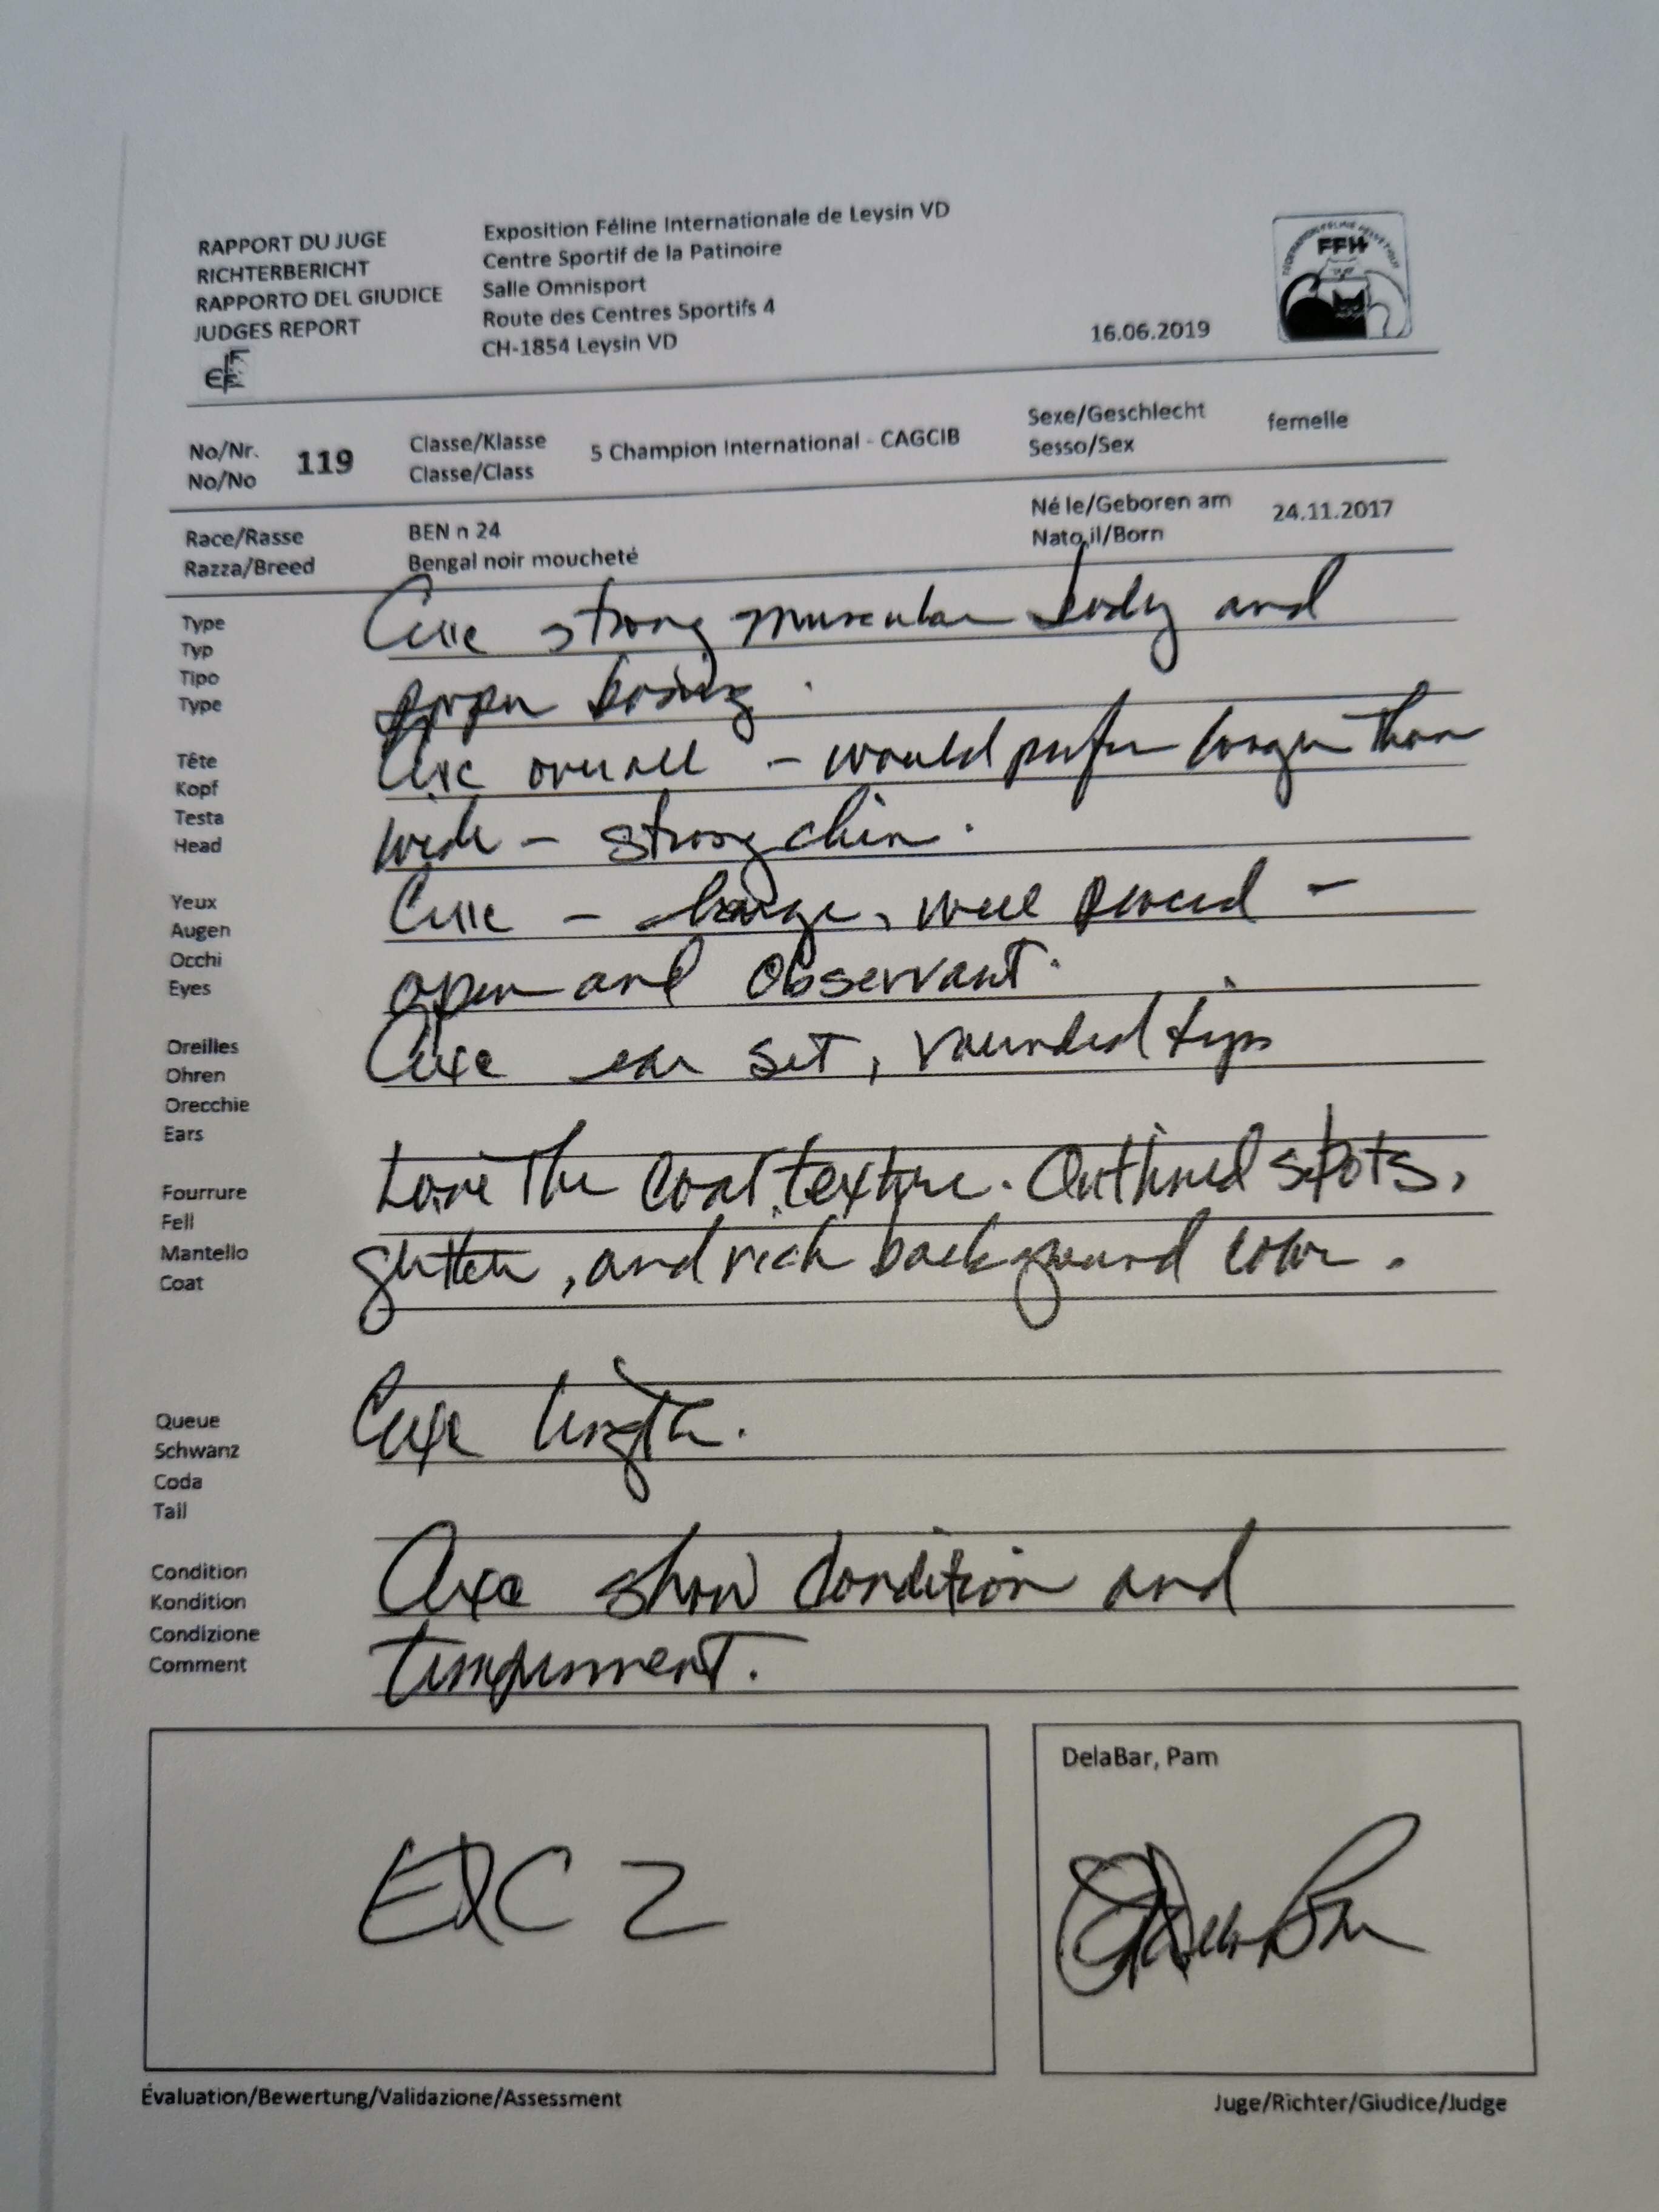 RAPPORT DU JUGE
RICHTERBERICHT
RAPPORTO DEL GIUDICE
JUDGES REPORT
Exposition Féline Internationale de Leysin VD
Centre Sportif de la Patinoire
Salle Omnisport
Route des Centres Sportifs 4
CH-1854 Leysin VD
16.06.2019
FFH
No/Nr.
No/No
119
Classe/Klasse
Classe/Class
5 Champion International - CAGCIB
Sexe/Geschlecht
Sesso/Sex
femelle
Race/Rasse
Razza/Breed
BEN n 24
Bengal noir moucheté
Né le/Geboren am
Nato il/Born
24.11.2017
Type
Typ
Tipo
Type
strong muscular body and
proper boning.
Tête
Kopf
Testa
Head
overall - would prefer longer than
wide - strong chin.
Yeux
Augen
Occhi
Eyes
- large, well placed -
open and observant.
Oreilles
Ohren
Orecchie
Ears
ear set, rounded tips
Fourrure
Fell
Mantello
Coat
Love the coat texture. Outlined spots,
glitter, and rich background color.
Queue
Schwanz
Coda
Tail
length.
Condition
Kondition
Condizione
Comment
show condition and
temperment.
EXC 2
DelaBar, Pam
Évaluation/Bewertung/Validazione/Assessment
Juge/Richter/Giudice/Judge